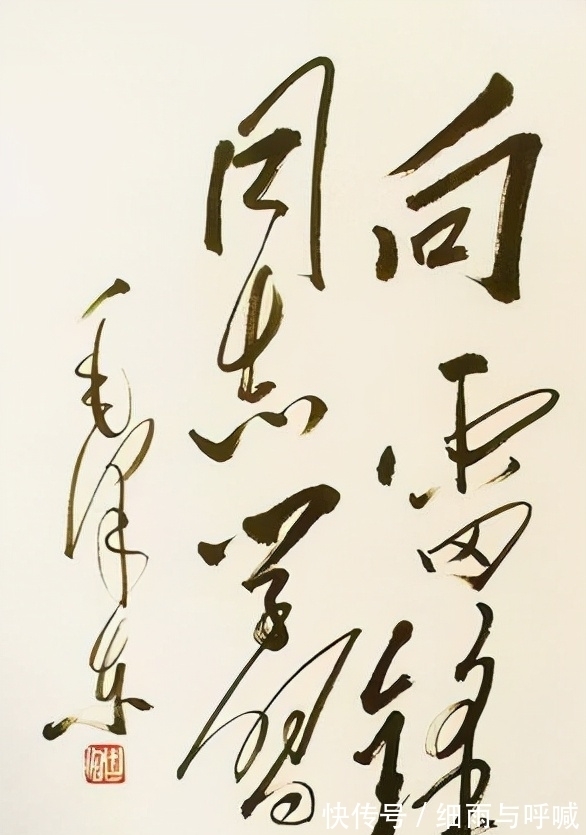 向雷锋
同志学习
毛泽东
快传号/细雨与呼喊